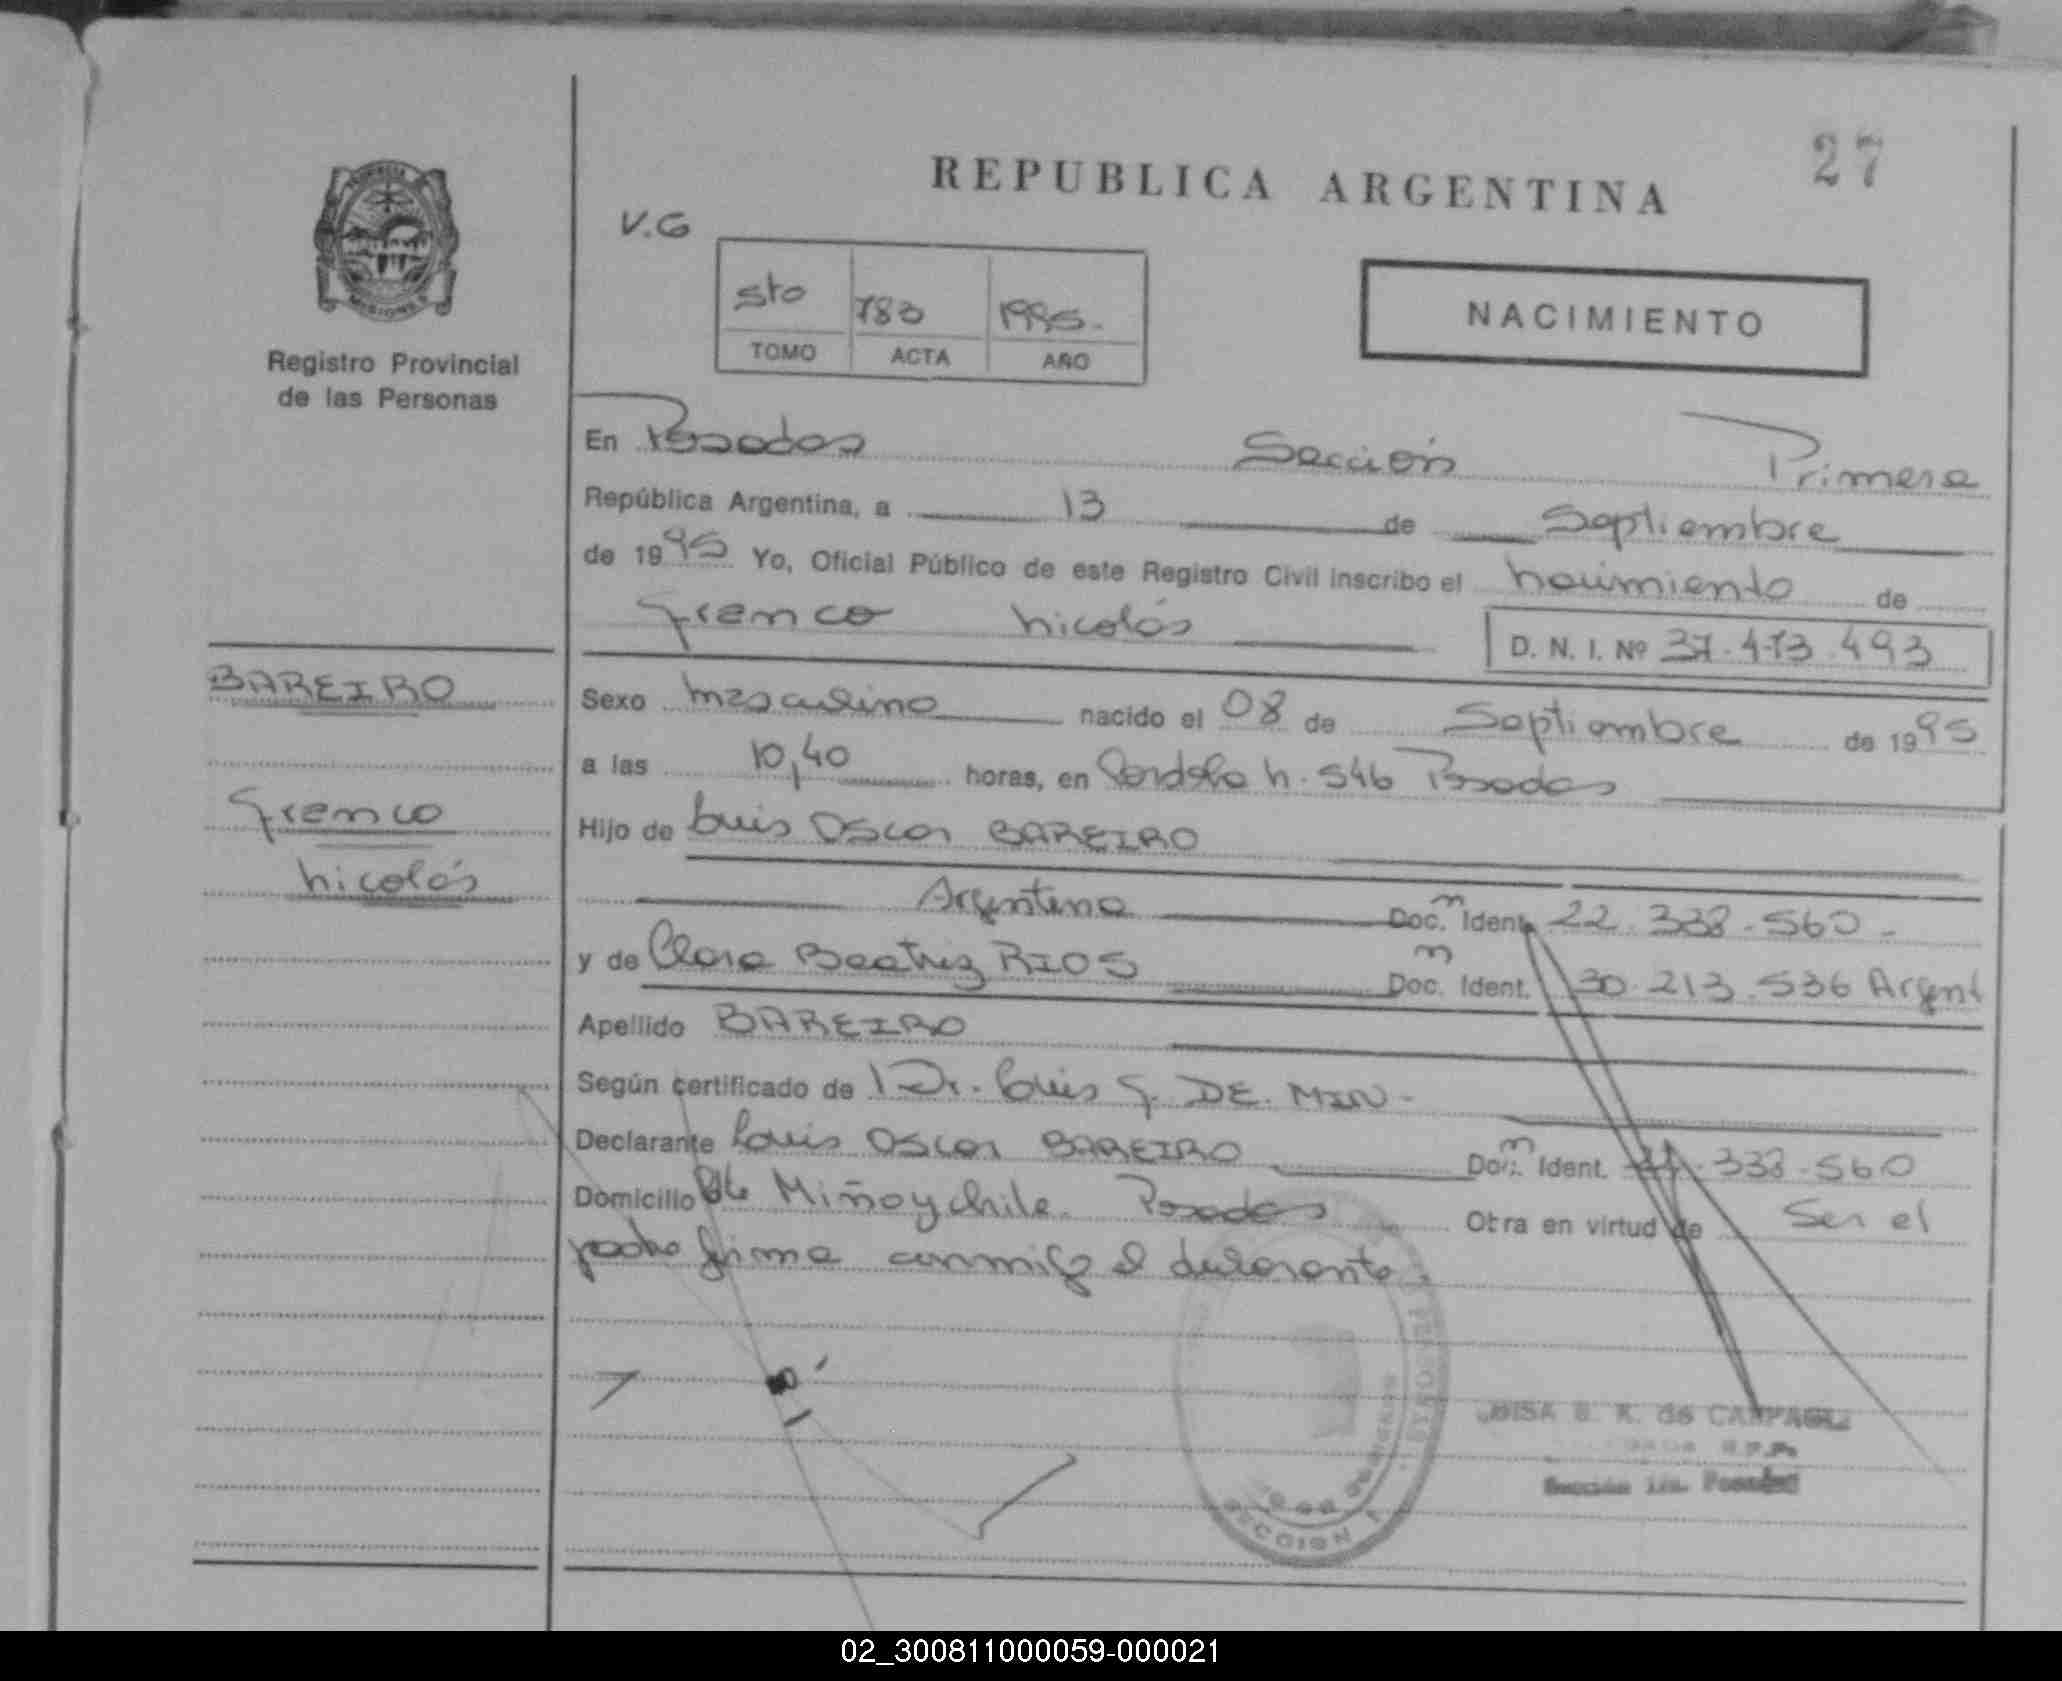 27
REPUBLICA ARGENTINA
V.G
5to 783 1995.-
TOMO ACTA AÑO
NACIMIENTO
Registro Provincial
de las Personas
En Posadas Sección Primera
República Argentina, a 13 de Septiembre
de 1995 Yo, Oficial Público de este Registro Civil inscribo el nacimiento de
Franco Nicolás D. N. I. Nº 37.473.493
BAREIRO
Franco
Nicolás
Sexo Masculino nacido el 08 de Septiembre de 1995
a las 10,40 horas, en Córdoba N. 546 Posadas
Hijo de Luis Oscar BAREIRO
Argentino Doc. Ident. 22.338.560.-
y de Clara Beatriz RIOS Doc. Ident. 30.213.536 Argent
Apellido BAREIRO
Según certificado de Dr. Luis F. DE. MIN.-
Declarante Luis Oscar BAREIRO Doc. Ident. 22.338.560
Domicilio Miño y Chile. Posadas Otra en virtud de Ser el
padre firma conmigo el declarante.
de CAMPAGL
R.P.P.
Sección 1ra. Posadas
SECCION 1
02_300811000059-000021